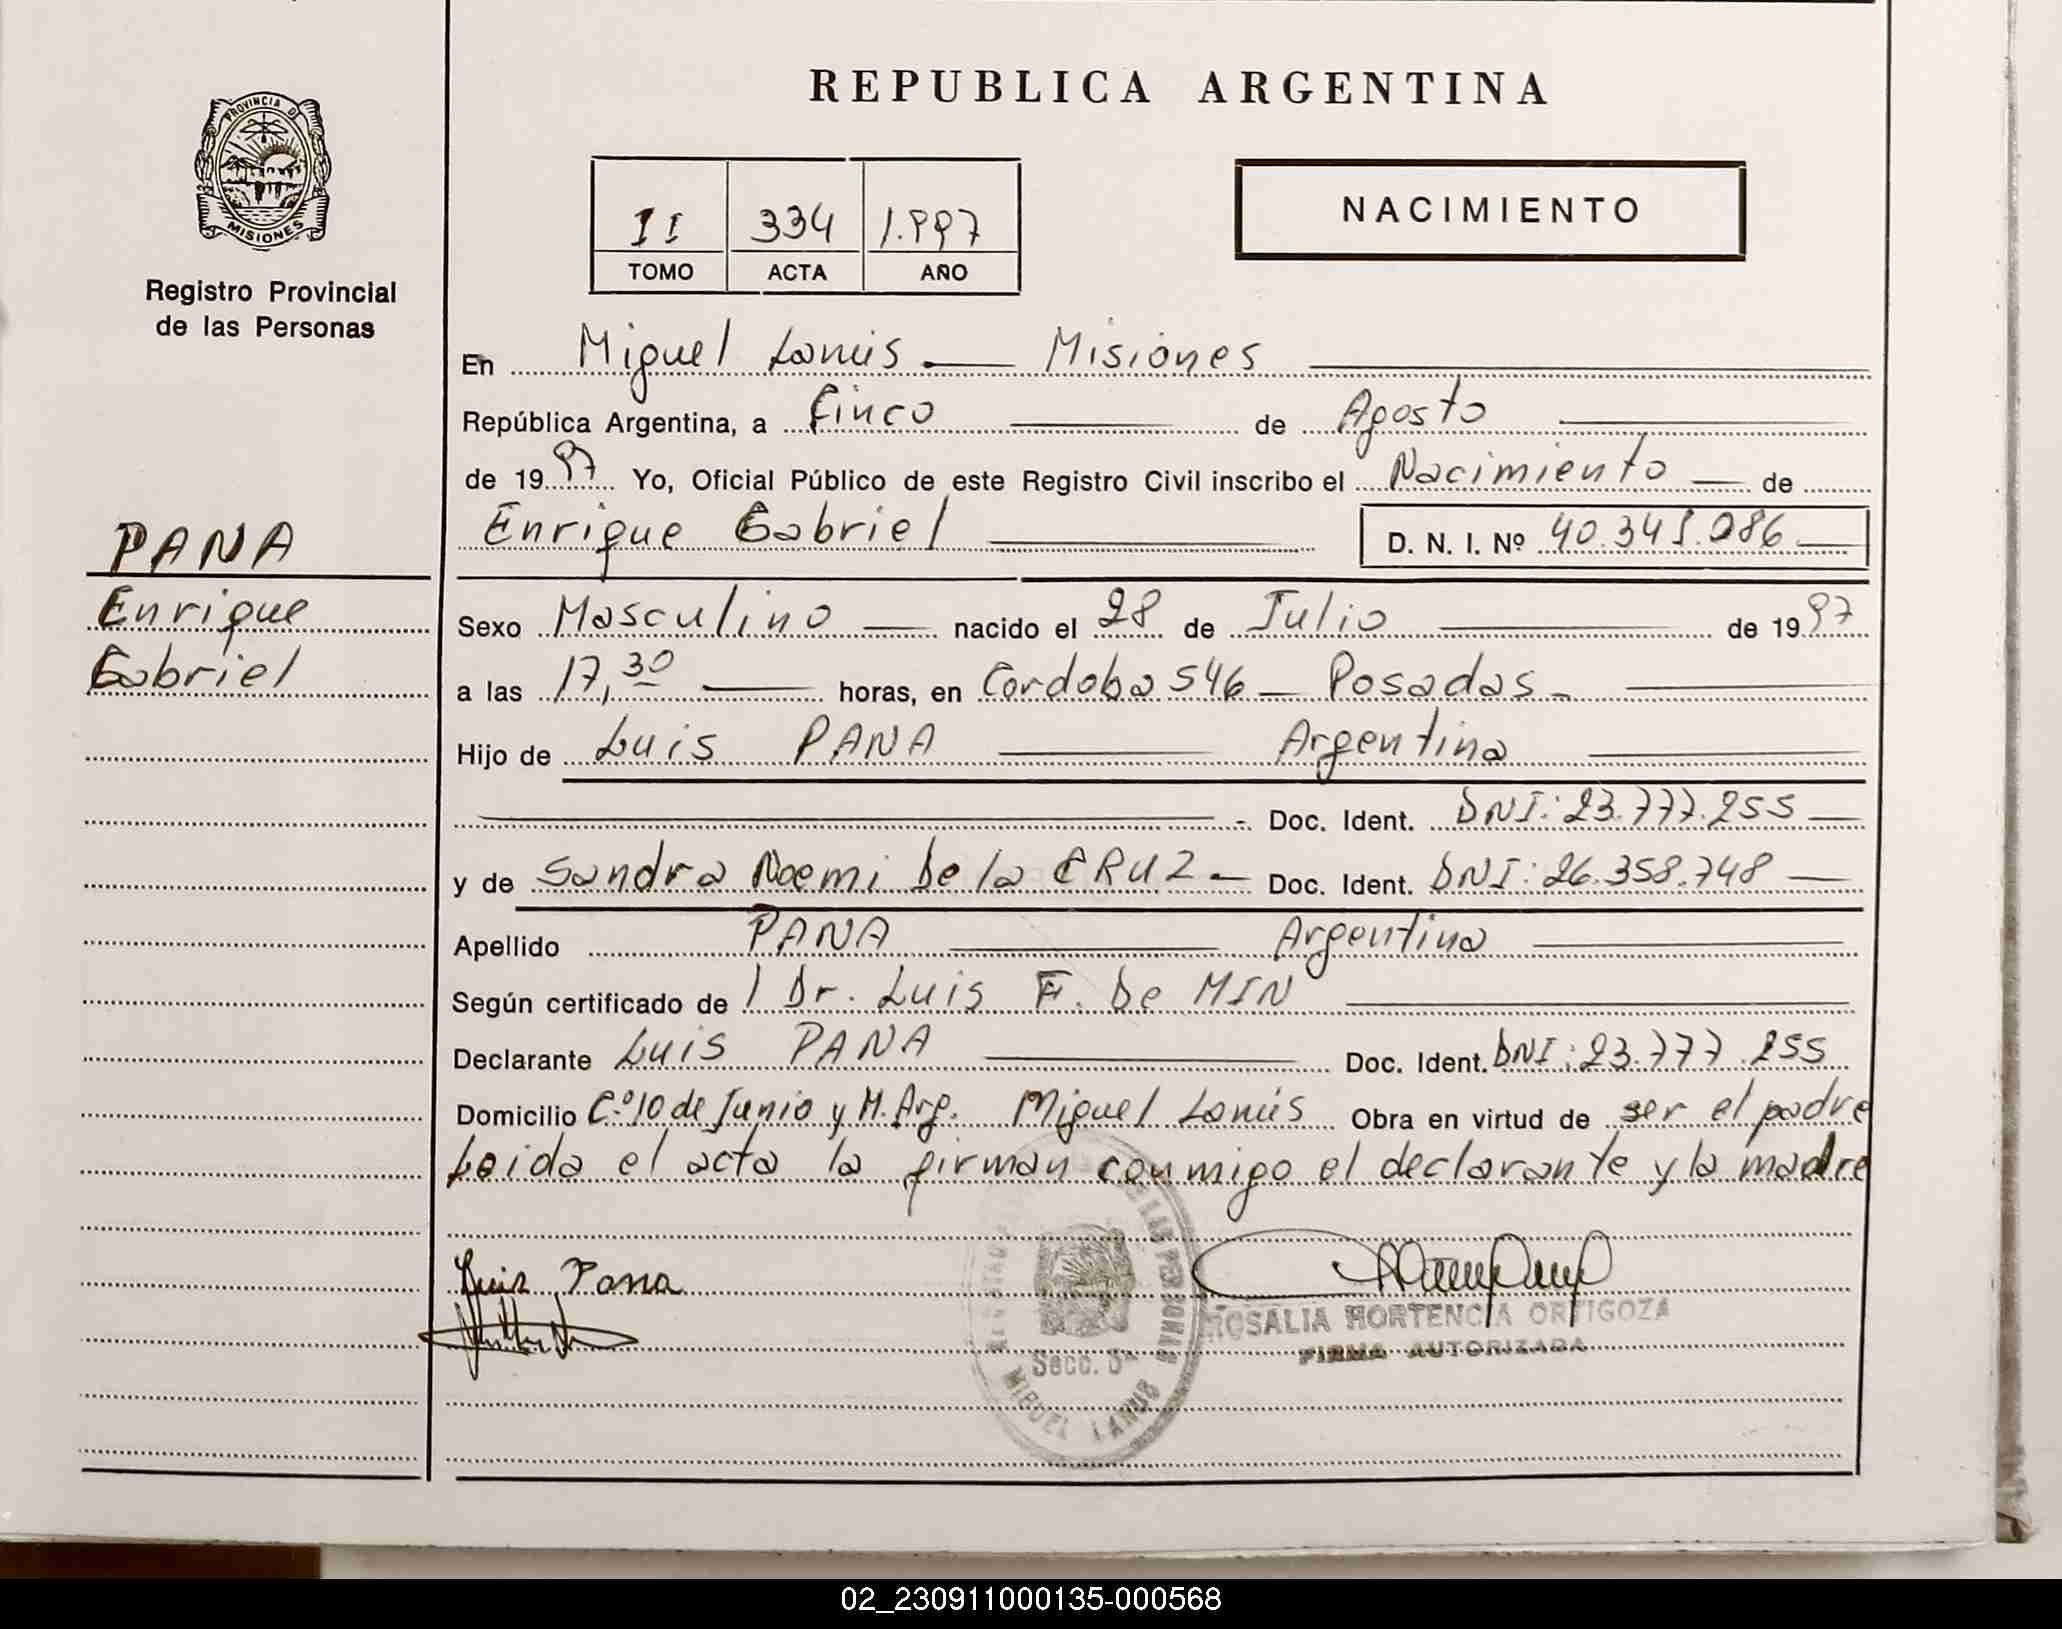 REPUBLICA ARGENTINA
PROVINCIA DE
MISIONES
Registro Provincial
de las Personas
II 334 1.997
TOMO ACTA AÑO
NACIMIENTO
En Miguel Lanús — Misiones
República Argentina, a Cinco de Agosto
de 1997 Yo, Oficial Público de este Registro Civil inscribo el Nacimiento — de
Enrique Gabriel D. N. I. Nº
PANA
Enrique
Gabriel
Sexo Masculino — nacido el 28 de Julio de 1997
a las 17,30 horas, en Cordoba 546 — Posadas -
Hijo de Luis PANA Argentina
Doc. Ident. DNI: 23.777.255
y de Sandra Noemi De la CRUZ - Doc. Ident. DNI: 26.358.748
Apellido PANA Argentina
Según certificado de l Dr. Luis F. De MIN
Declarante Luis PANA Doc. Ident. DNI: 23.777.255
Domicilio C.º 10 de Junio y M. Arg. Miguel Lanús Obra en virtud de ser el padre
Leida el acta la firman conmigo el declarante y la madre
Luis Pana
ROSALIA HORTENCIA ORTIGOZA
FIRMA AUTORIZADA
DE LAS PERSONAS
Secc. 5ª
MIGUEL LANUS
02_230911000135-000568